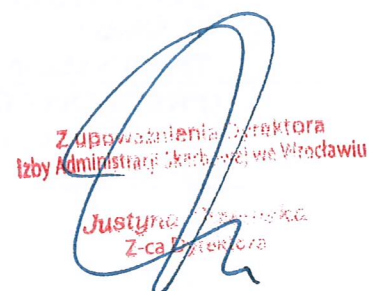 Z upoważnienia Dyrektora
Izby Administracji Skarbowej we Wrocławiu
Justyna
Z-ca Dyrektora